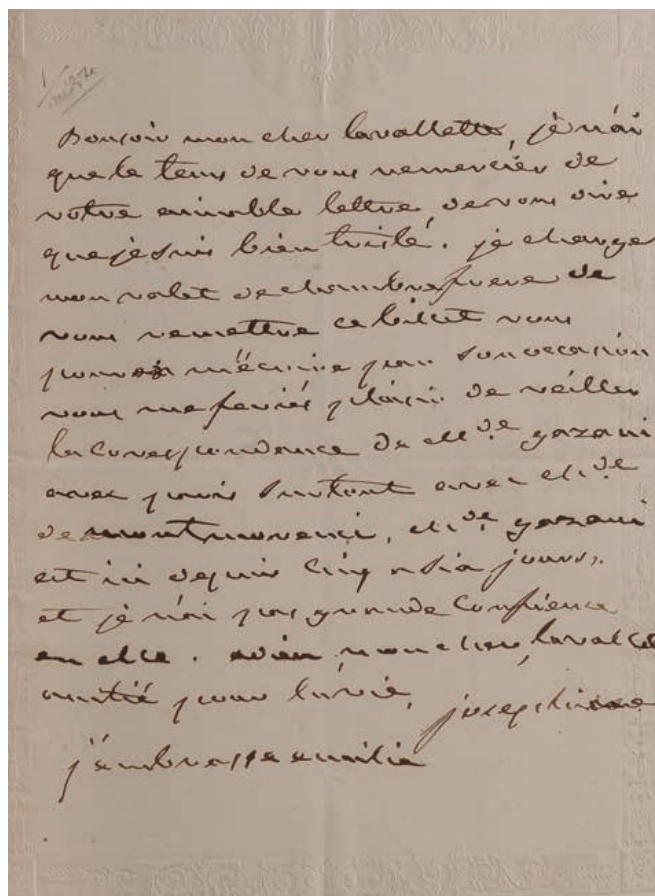 Bonsoir mon cher lavallette, je n'ai
que le tems de vous remercier de
votre aimable lettre, de vous dire
que je suis bien triste. je charge
mon valet de chambre frere de
vous remettre ce billet vous
pouvés m'écrire par son occasion
vous me feriés plaisir de veiller
la correspondance de Mde gazani
avec paris surtout avec Mde
de montmorenci, Mde gazani
est ici depuis cinq a six jours,
et je n'ai pas grande confience
en elle. adieu, mon cher lavalette
amitié pour la vie,
josephine
j'embrasse emilie